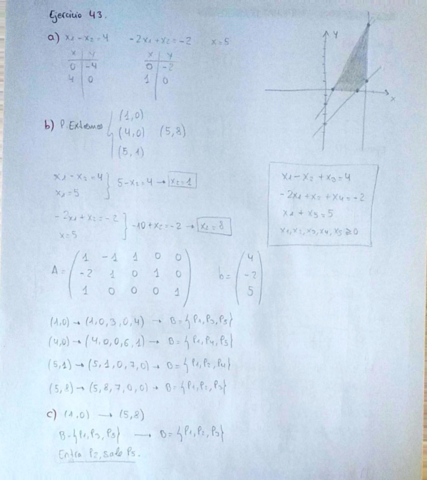 Ejercicio 43.
a) x1 - x2 = 4   -2x1 + x2 = -2   x = 5
x y   x y
0 -4   0 -2
4 0   1 0
y
x
b) P. Extremos { (1,0)
(4,0)   (5,8)
(5,1)
x1 - x2 = 4
x1 = 5 } 5 - x2 = 4 → x2 = 1
-2x1 + x2 = -2
x = 5 } -10 + x2 = -2 → x2 = 8
x1 - x2 + x3 = 4
-2x1 + x2 + x4 = -2
x1 + x5 = 5
x1, x2, x3, x4, x5 ≥ 0
A = ( 1 -1 1 0 0
-2 1 0 1 0
1 0 0 0 1 )
b = ( 4
-2
5 )
(1,0) → (1,0,3,0,4) → B = {P1, P3, P5}
(4,0) → (4,0,0,6,1) → B = {P1, P4, P5}
(5,1) → (5,1,0,7,0) → B = {P1, P2, P4}
(5,8) → (5,8,7,0,0) → B = {P1, P2, P3}
c) (1,0) → (5,8)
B = {P1, P3, P5} → B = {P1, P2, P3}
Entra P2, sale P5.